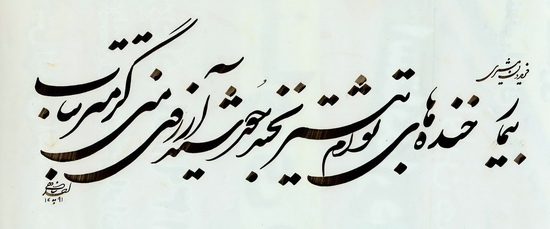 فریدون مشیری
بیمار خنده‌های توام بیشتر بخند
خورشید آرزوی منی گرمتر بتاب